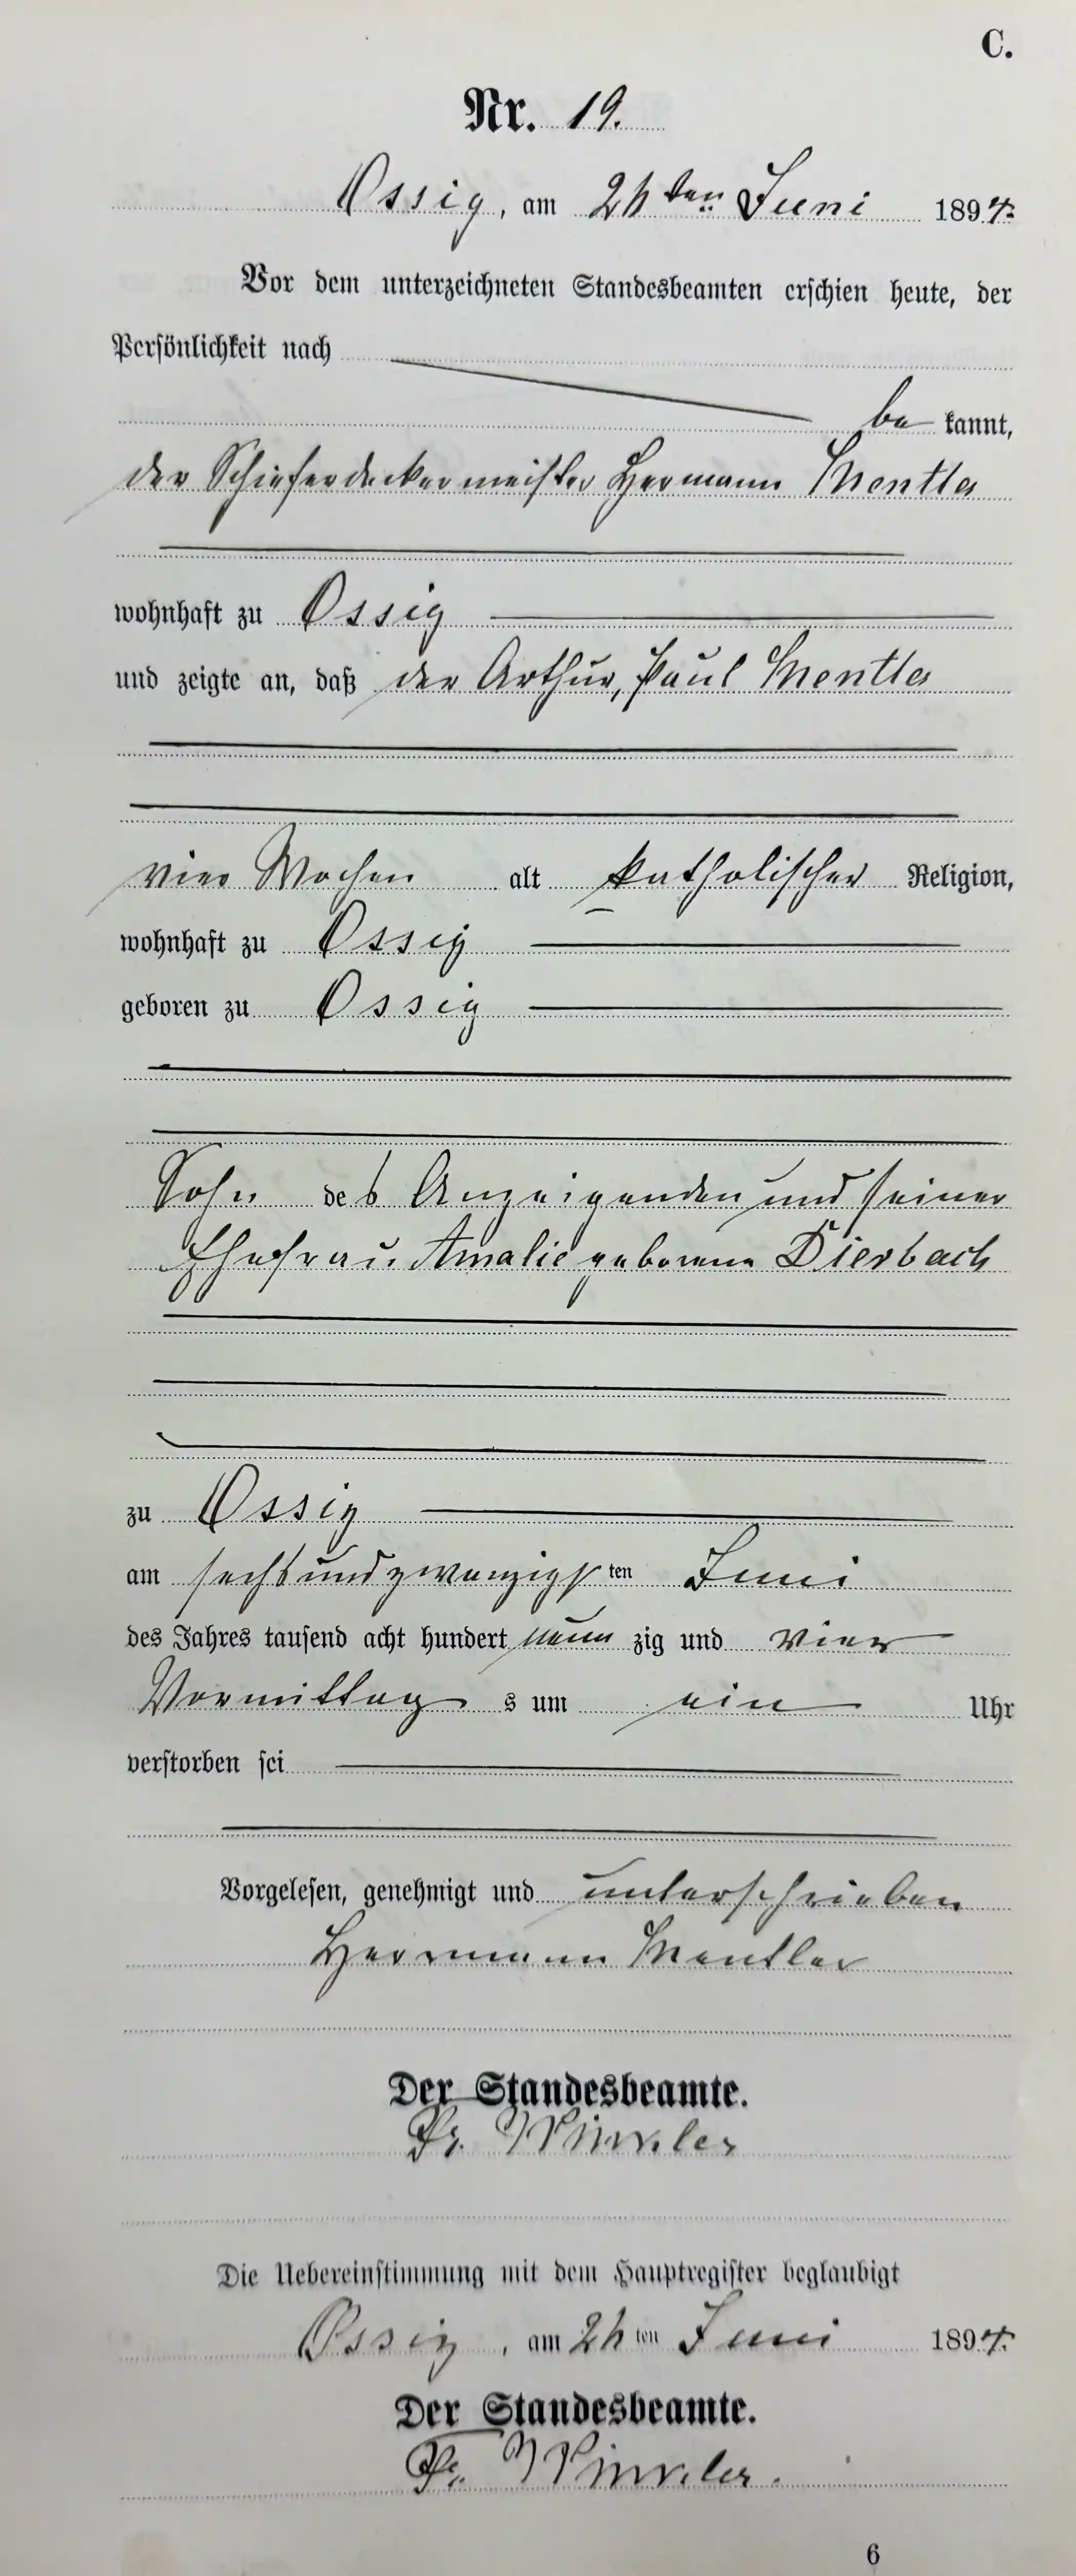 C.
Nr. 19.
Ossig, am 26ten Juni 1894.
Vor dem unterzeichneten Standesbeamten erschien heute, der
Persönlichkeit nach
be kannt,
der Schieferdeckermeister Hermann Mentler
wohnhaft zu Ossig
und zeigte an, daß der Arthur, Paul Mentler
vier Wochen alt katholischer Religion,
wohnhaft zu Ossig
geboren zu Ossig
Sohn des Anzeigenden und seiner
Ehefrau Amalie geborene Dierbach
zu Ossig
am sechsundzwanzigsten Juni
des Jahres tausend acht hundert neun zig und vier
Vormittag s um ein Uhr
verstorben sei
Vorgelesen, genehmigt und unterschrieben
Hermann Mentler
Der Standesbeamte.
Fr. Winkler
Die Uebereinstimmung mit dem Hauptregister beglaubigt
Ossig, am 26ten Juni 1894.
Der Standesbeamte.
Fr. Winkler.
6